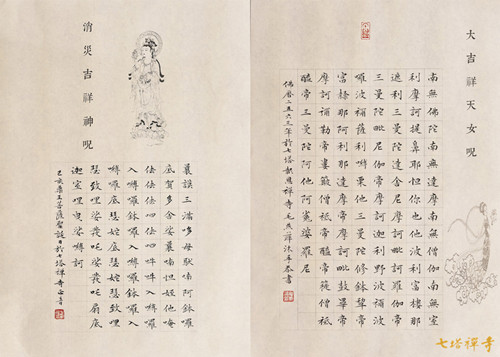 大吉祥天女呪
南無佛陀南無達摩南無僧伽南無室
利摩訶提鼻耶怛你也他波利富樓那
遮利三曼陀達舍尼摩訶毗訶羅伽帝
三曼陀毗尼伽帝摩訶迦利野波禰波
囉波禰薩利嚩栗他三曼陀修鉢犂帝
富隸那阿利那達摩帝摩訶毗鼓畢帝
摩訶彌勒帝婁簸僧祗帝醯帝簁僧祗
醯帝三曼陀阿他阿㝹婆羅尼
佛曆二五六三年於七塔報恩禪寺毛燕萍沐手恭書
消災吉祥神呪
曩謨三滿哆母馱喃阿鉢囉
底賀多舍娑曩喃怛姪他唵
佉佉佉呬佉呬吽吽入嚩囉
入嚩囉鉢囉入嚩囉鉢囉入
嚩囉底瑟姹底瑟姹瑟致哩
瑟致哩娑癹吒娑癹吒扇底
迦室哩曳娑嚩訶
己亥菩薩聖誕日於七塔禪寺
七塔禪寺